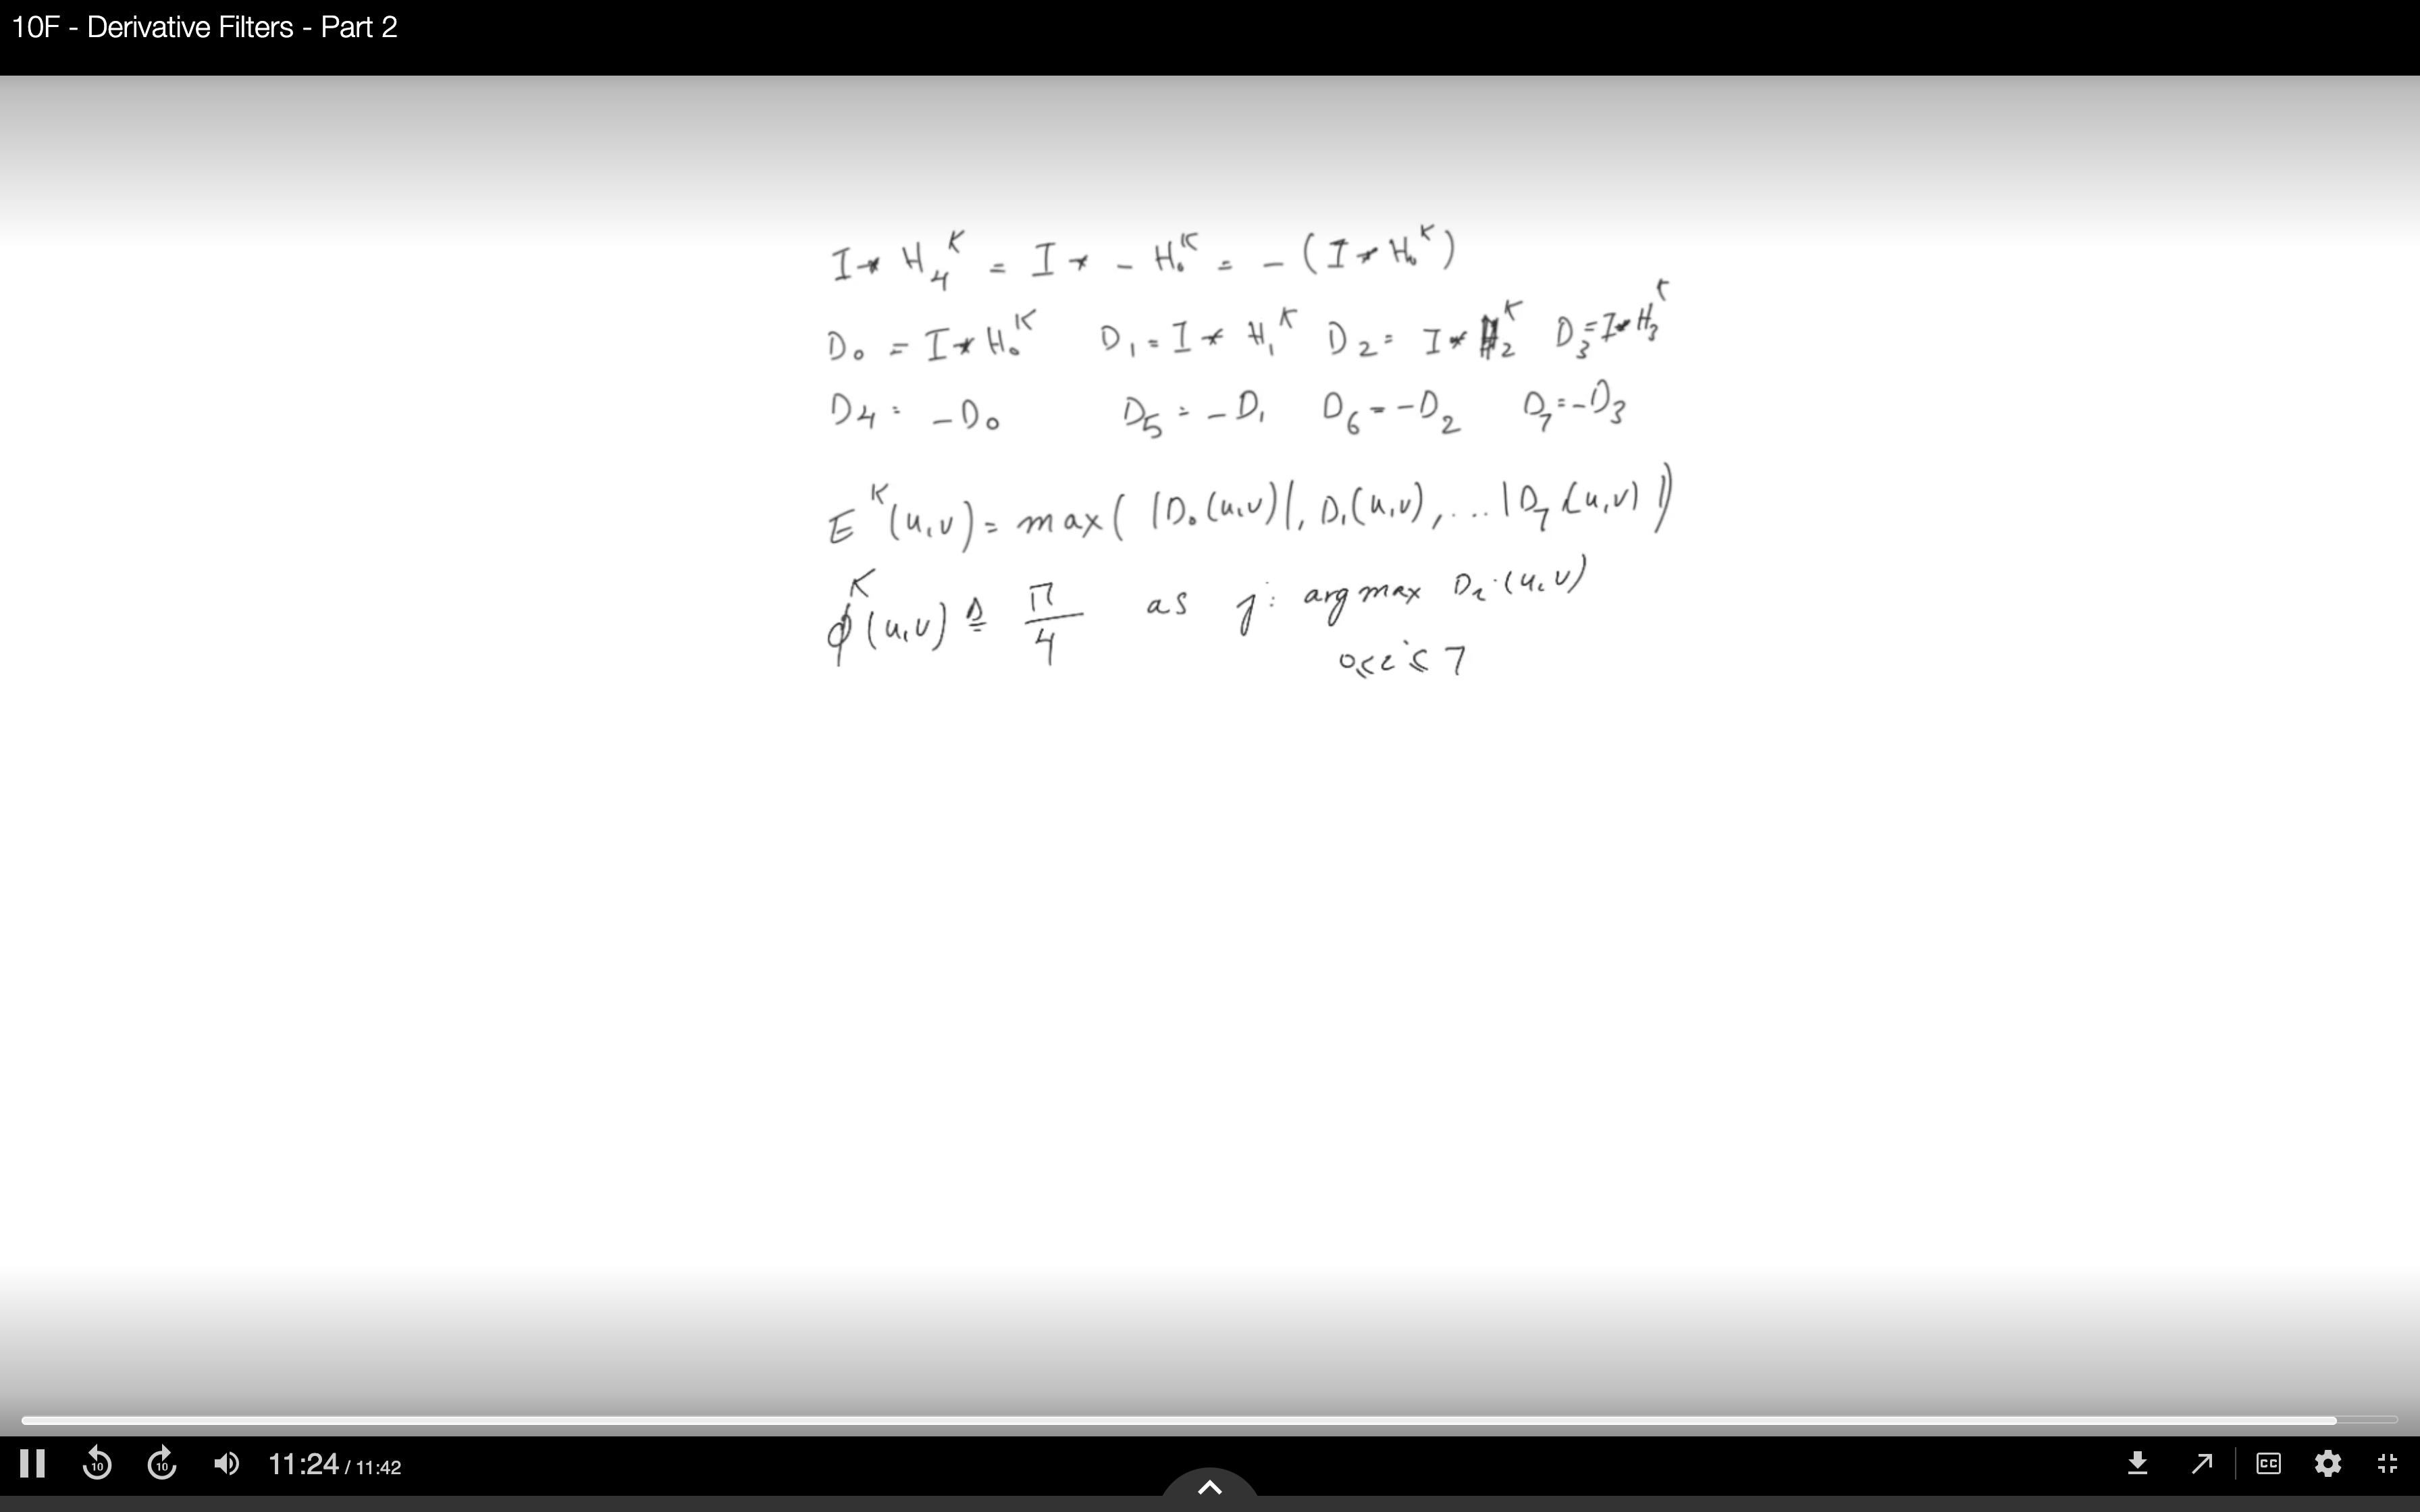 10F - Derivative Filters - Part 2
I * H₄ᴷ = I * - H₀ᴷ = - (I * H₀ᴷ)
D₀ = I * H₀ᴷ D₁ = I * H₁ᴷ D₂ = I * H₂ᴷ D₃ = I * H₃ᴷ
D₄ = -D₀ D₅ = -D₁ D₆ = -D₂ D₇ = -D₃
Eᴷ(u,v) = max( |D₀(u,v)|, D₁(u,v), ... |D₇(u,v)|)
ϕᴷ(u,v) ≜ π/4 as j: argmax Dᵢ(u,v)
0≤i≤7
10 10 11:24 / 11:42 CC